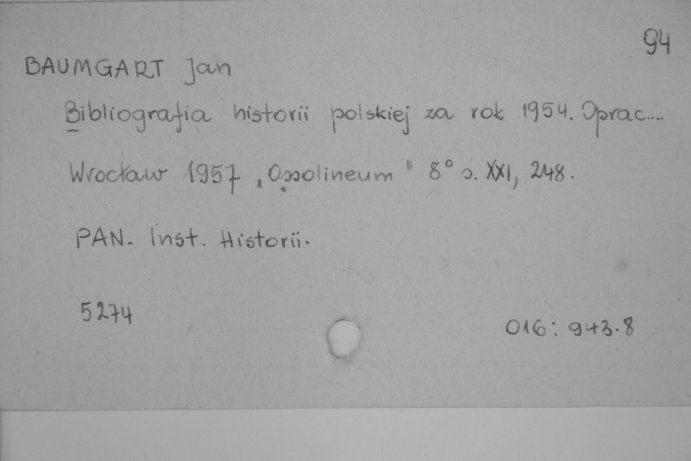 94
BAUMGART Jan
Bibliografia historii polskiej za rok 1954. Oprac....
Wrocław 1957 „Ossolineum" 8° s. XXI, 248.
PAN. Inst. Historii.
5274
016: 943.8